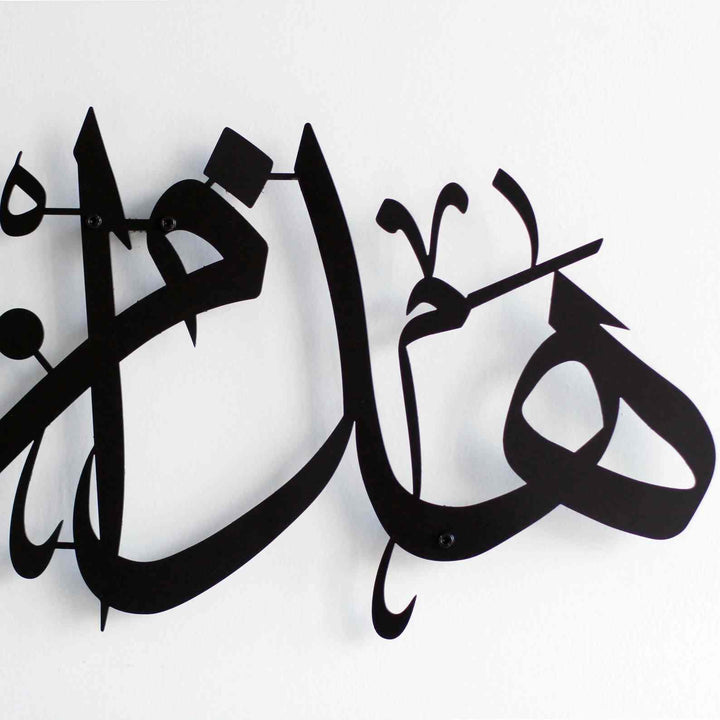 هذا من